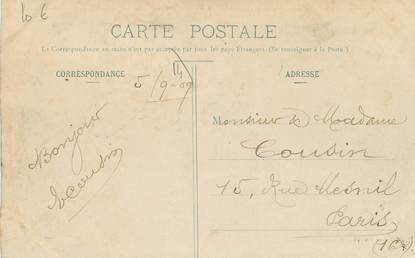 10 €
CARTE POSTALE
La Correspondance au recto n'est pas acceptée par tous les pays Étrangers. (Se renseigner à la Poste.)
CORRESPONDANCE
5/9-09
Bonjour
ADRESSE
Monsieur & Madame
Cousin
15, Rue Mesnil
Paris